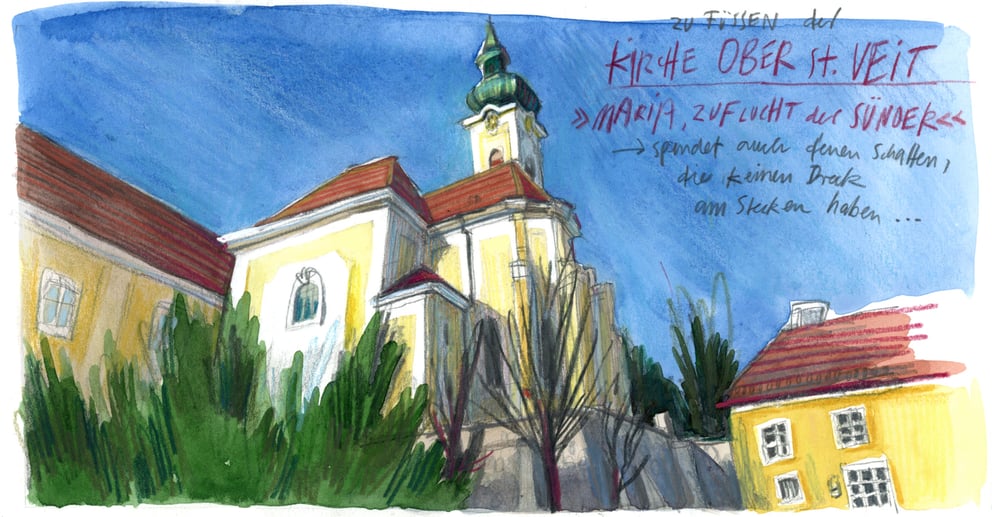 zu FÜSSEN der
KIRCHE OBER St. VEIT
»MARIA, ZUFLUCHT der SÜNDER«
→ spendet auch denen Schatten,
die keinen Dreck
am Stecken haben ...